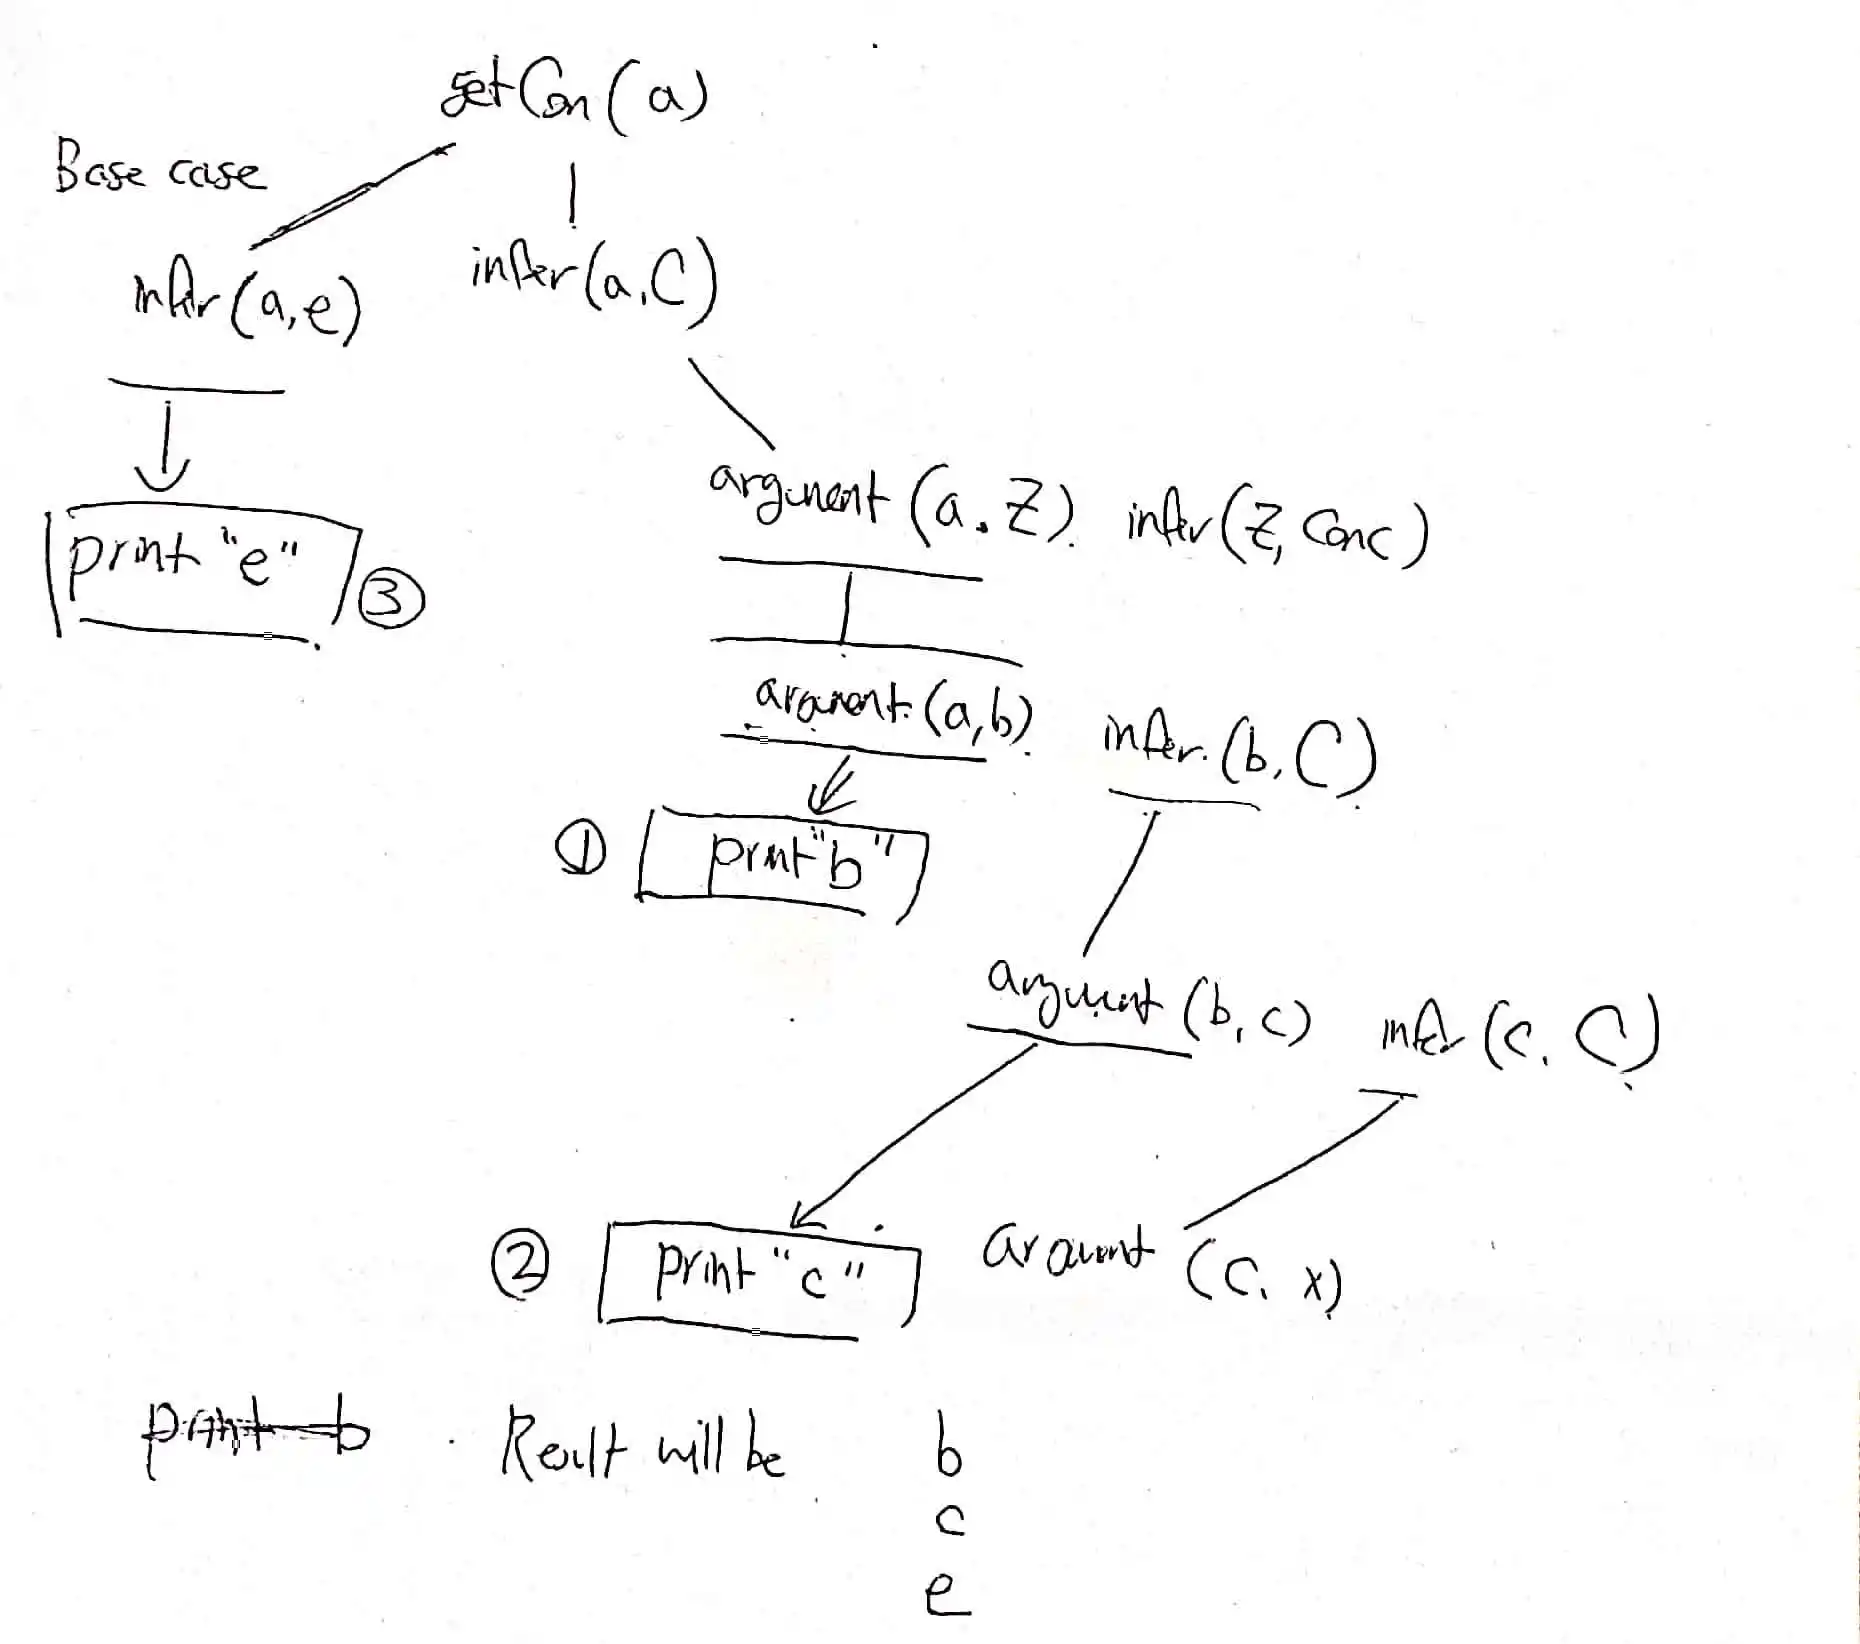 setCon(a)
Base case
infer(a,e)
infer(a,C)
argument(a,Z). infer(Z, Conc)
print "e"
③
argument(a,b)
infer(b,C)
① print "b"
argument(b,c)
infer(c,C)
② print "c"
argument(c,x)
print b
Result will be b
c
e